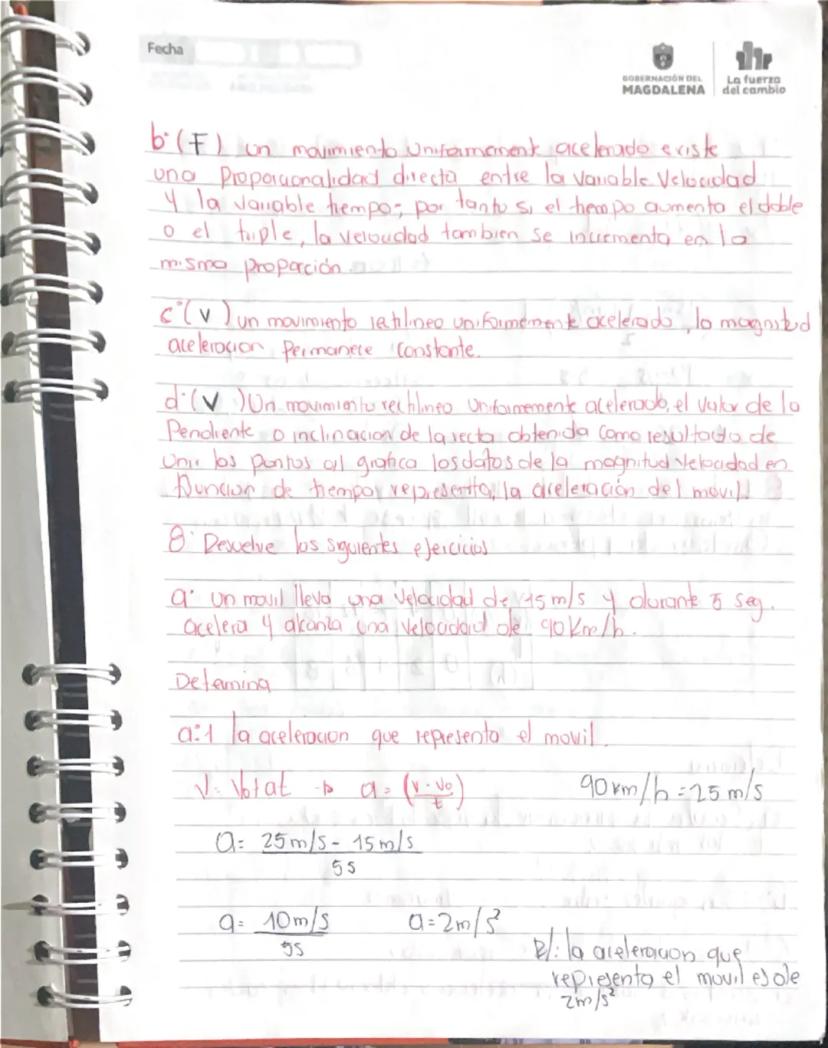 Fecha
GOBERNACIÓN DEL
MAGDALENA
La fuerza
del cambio
b· (F) un movimiento Uniformement acelerado existe
una Proporcionalidad directa entre la variable Velocidad
y la variable tiempo; por tanto si el tiempo aumenta el doble
o el triple, la velocidad tambien se incrementa en la
misma proporción.
c· (V) un movimiento rectilineo uniformemente acelerado, la magnitud
aceleracion Permanece Constante.
d· (V) Un movimiento rectilineo Uniformemente acelerado, el Valor de la
Pendiente o inclinacion de la recta obtenida como resultado de
Unir los puntos al grafica los datos de la magnitud Velocidad en
funcion de tiempo, representa, la aceleración del movil.
8· Desuelve los siguientes ejercicios
a· un movil lleva una velocidad de 15 m/s y durante 5 seg.
acelera y alcanza una velocidad de 90 Km/h.
Determina
a:1 la aceleracion que representa el movil.
V= Vo+at → a= (v-vo/t) 90 km/h = 25 m/s
a= 25 m/s - 15 m/s
5s
a= 10 m/s a= 2m/s²
5s
R/: la aceleracion que
representa el movil es de
2m/s²